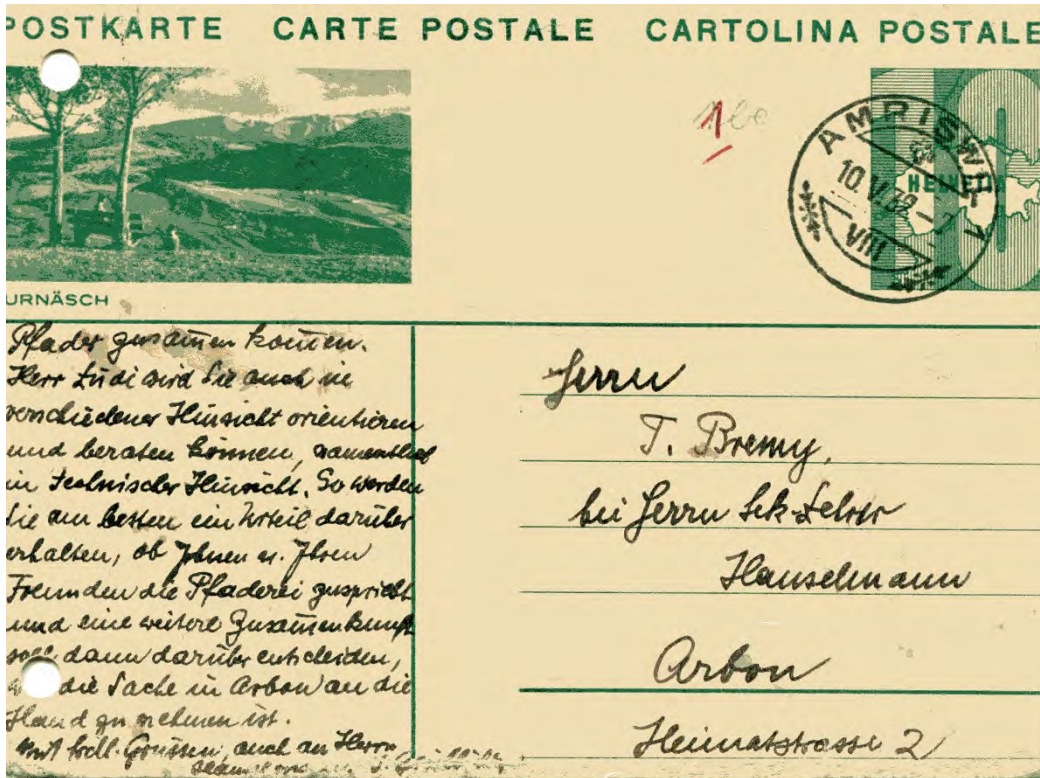 POSTKARTE CARTE POSTALE CARTOLINA POSTALE
1
AMRISWIL
10.V.32
VIII
HELVETIA
URNÄSCH
Pfader zusam̅en kom̅en.
Herr Lüdi wird Sie auch in
verschiedener Hinsicht orientieren
und beraten können, namentlich
in technischer Hinsicht. So werden
Sie am besten ein Urteil darüber
erhalten, ob Ihnen u. Ihren
Freunden die Pfaderei zuspricht
und eine weitere Zusam̅enkunft
soll dann darüber entscheiden,
die Sache in Arbon an die
Hand zu nehmen ist.
Mit frdl. Grüssen, auch an Herrn
Herrn
T. Bremy,
bei Herrn Sek-Lehrer
Hanselmann
Arbon
Heimatstrasse 2